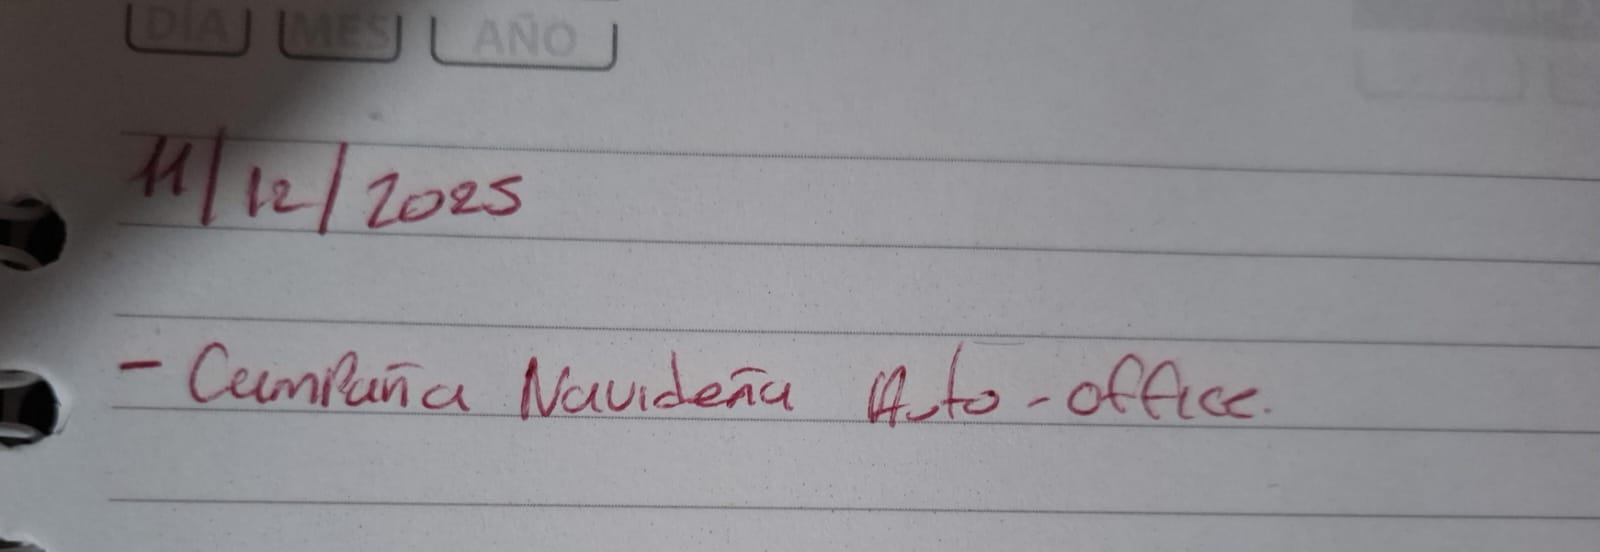 DÍA MES AÑO
11/12/2025
- Campaña Navideña Auto-office.